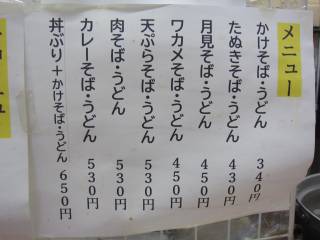 メニュー
かけそば・うどん 340円
たぬきそば・うどん 430円
月見そば・うどん 450円
ワカメそば・うどん 450円
天ぷらそば・うどん 530円
肉そば・うどん 530円
カレーそば・うどん 530円
丼ぶり＋かけそば・うどん 650円